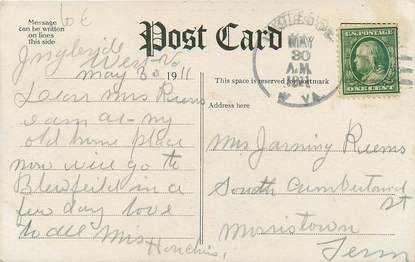 Message
can be written
on lines
this side
Post Card
This space is reserved for postmark
Address here
INGLESIDE
MAY
30
A.M.
1911
W. VA.
U.S. POSTAGE
ONE CENT
Ingleside
West Va
May 30 1911
Dear Mrs Reems
I am at my
old home place
now will go to
Bluefeild in a
few day love
to all Miss
Houchins
Mrs Jarning Reems
South Cumberland
St
Morristown
Tenn